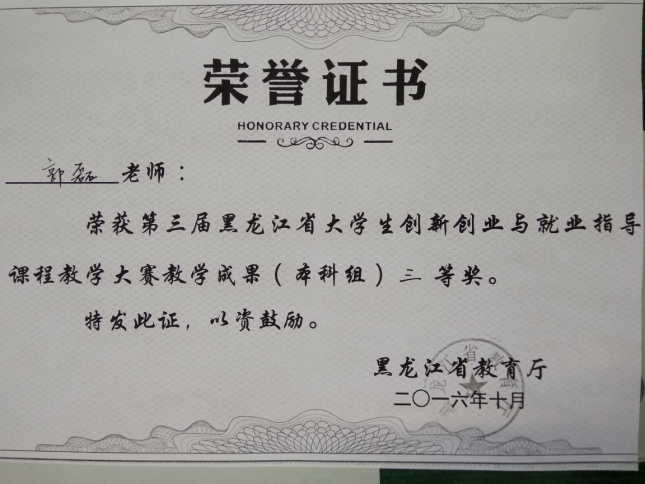 荣誉证书
HONORARY CREDENTIAL
郭磊 老师：
荣获第三届黑龙江省大学生创新创业与就业指导
课程教学大赛教学成果（本科组）三 等奖。
特发此证，以资鼓励。
黑龙江省教育厅
二〇一六年十月
黑龙江省教育厅